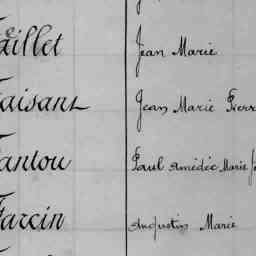 aillet Jean Marie
aisant Jean Marie Pierr
antou Paul Amédée Marie
arcin Augustin Marie